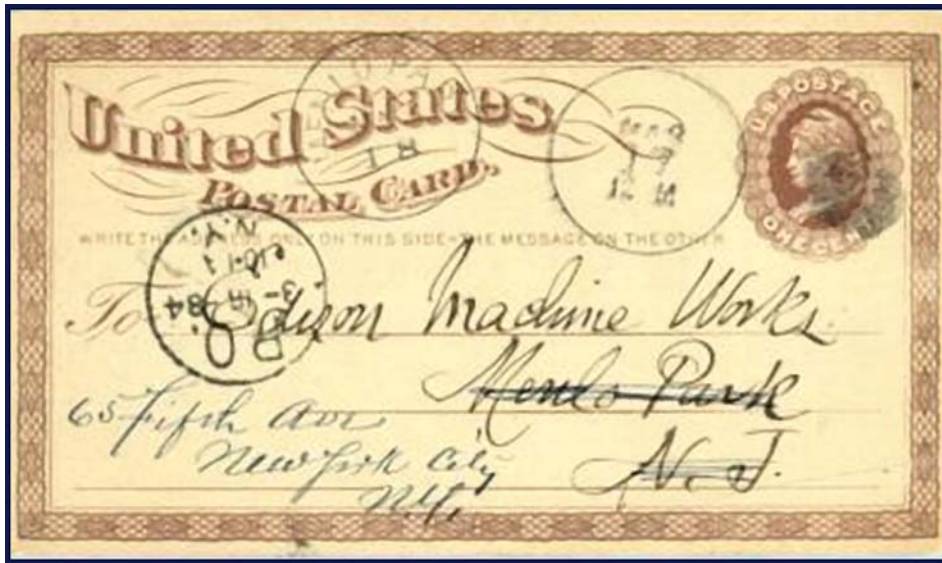 United States
POSTAL CARD.
U.S. POSTAGE
ONE CENT
MAR
17
12 M
WRITE THE ADDRESS ONLY ON THIS SIDE - THE MESSAGE ON THE OTHER
N.Y.
84
P.O.
To Edison Machine Works
Menlo Park
N. J.
65 Fifth Ave
New York City
N.Y.